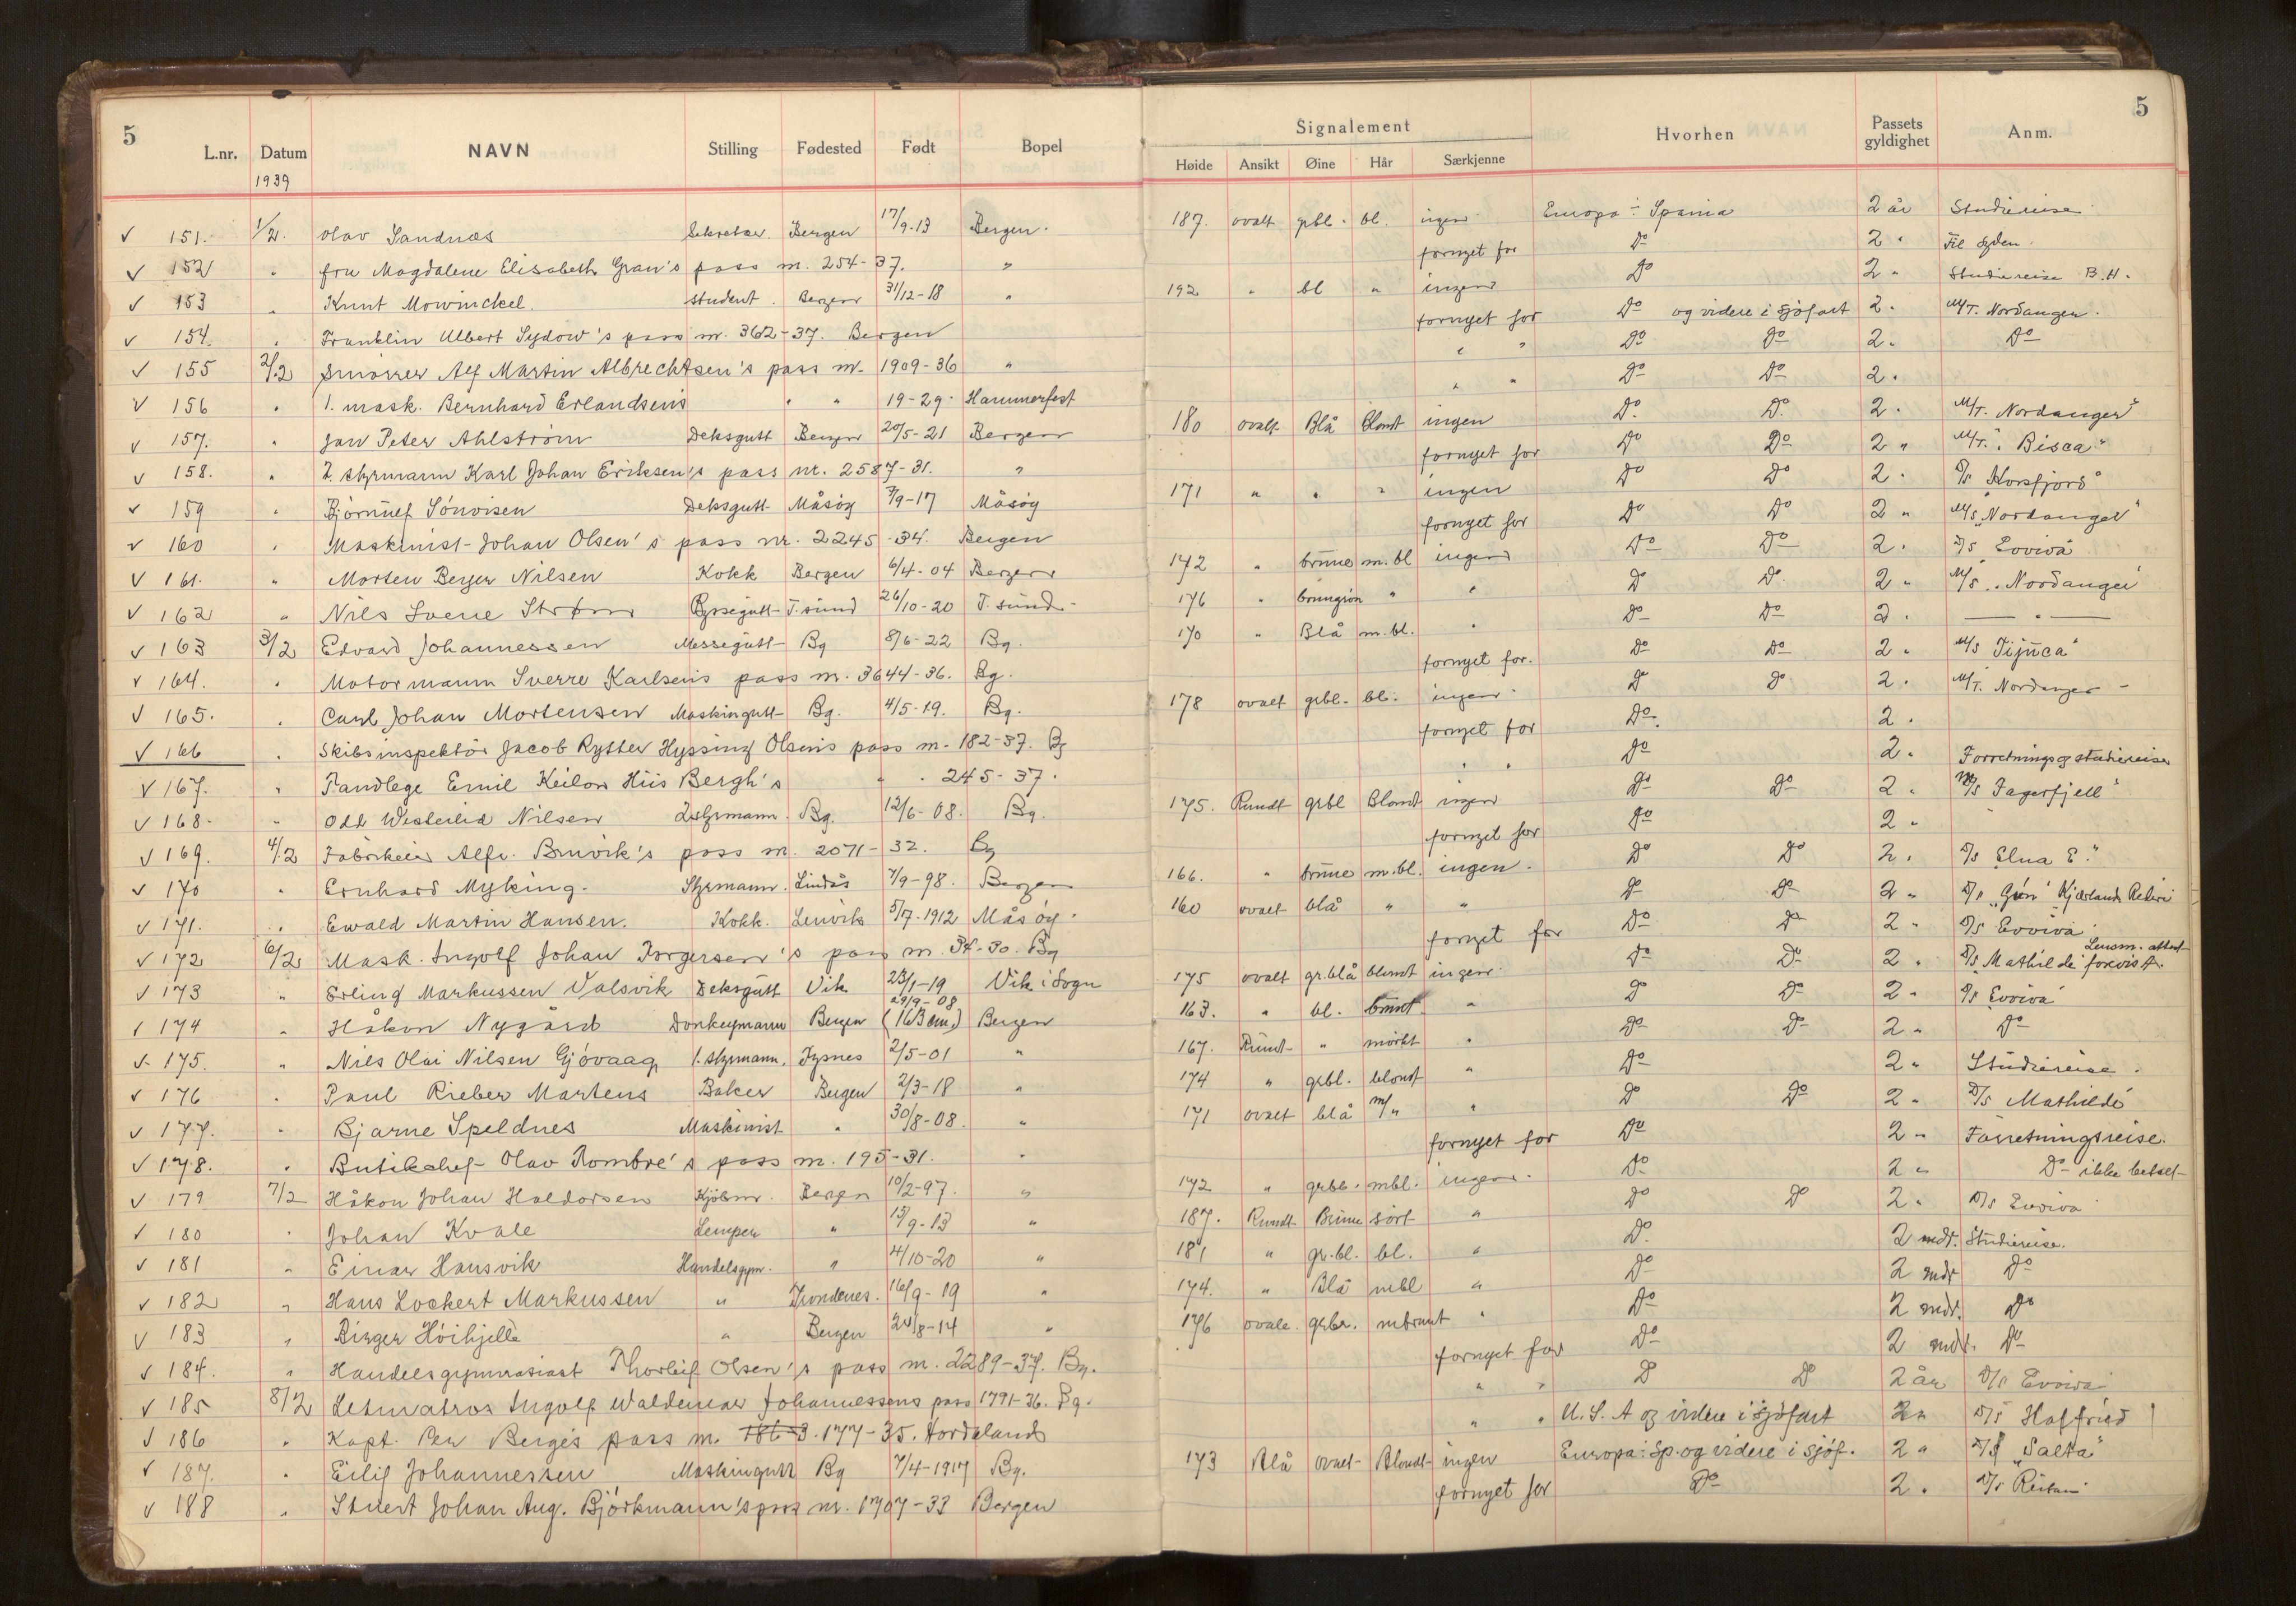 5
L.nr. Datum NAVN Stilling Fødested Født Bopel
1939
151. 1/2. Olav Sandnæs Sekretær. Bergen 17/9-13 Bergen.
152 " fru Magdalene Elisabeth Gran's pass nr. 254-37. "
153 " Knut Mowinckel. student. Bergen 31/12-18 "
154. " Franklin Albert Sydow's pass nr. 362-37. Bergen
155 2/2 Smörer Alf Martin Albrechtsen's pass nr. 1909-36 "
156 " 1. mask. Bernhard Erlandsens " " 19-29. Hammerfest
157. " Jan Peter Ahlström Deksgutt Bergen 20/5-21 Bergen
158. " 2. styrmann Karl Johan Eriksen's pass nr. 2587-31. "
159 " Björnulf Deksgutt Måsöy 7/9-17 Måsöy
160 " Maskinist Johan Olsen's pass nr. 2245-34. Bergen
161. " Morten Berger Nilsen Kokk Bergen 6/4-04 Bergen
162 " Nils Sverre Strøm T.sund 26/10-20 T.sund
163 3/2 Edvard Johannessen Messegutt Bg 8/6-22 Bg.
164. " Motormann Sverre Karlsens pass nr. 3644-36. Bg.
165. " Carl Johan Mortensen Maskingutt Bg. 4/5-19. Bg.
166 " Skibsinspektör Jacob Rytter Hyssing Olsens pass nr. 182-37. Bg
167. " Tandlege Emil Keilon Hiis Bergh's " " 245-37.
168. " Odd Westerlid Nilsen 2.styrmann. Bg. 12/6-08. Bg.
169. 4/2 Fabrikeier Alfr. Bruvik's pass nr. 2071-32. Bg
170 " Ernhard Myking. Styrmann. Lindås 7/9-98. Bergen
171. " Ewald Martin Hansen. Kokk. Lenvik 5/7-1912 Måsöy.
172 6/2 Mask. Ingolf Johan Torgersen's pass nr. 34-30. Bg
173 " Erling Markussen Valsvik Deksgutt Vik 23/1-19 Vik i Sogn
174 " Håkon Nygård Donkeymann Bergen 29/9-08 (163 cm.) Bergen
175. " Nils Olai Nilsen Gjövaag 1. styrmann. Tysnes 2/5-01 "
176 " Paul Rieber Martens Baker Bergen 2/3-18 "
177. " Bjarne Speldnes Maskinist " 30/8-08. "
178. " Butikchef Olav Rombre's pass nr. 195-31. "
179 7/2 Håkon Johan Haldorsen Kjöbm. Bergen 10/2-97. "
180 " Johan Kvale Lemper " 15/9-13 "
181 " Einar Hansvik Handelsgym. " 4/10-20 "
182 " Hans Lockert Markussen " Trondenes. 16/9-19 "
183 " Birger Höihjelle " Bergen 24/8-14 "
184. " Handelsgymnasiast Thorleif Olsen's pass nr. 2289-37. Bg.
185 8/2 Letmatros Ingolf Waldemar Johannessens pass 1791-36. Bg.
186 " Kapt. Per Berges pass nr. 186-3. 177-35. Hordaland
187. " Eilif Johannessen Maskingutt Bg 7/4-1917 Bg.
188 " Stuert Johan Aug. Björkmann's pass nr. 1707-33 Bergen
5
Signalement Hvorhen Passets gyldighet Anm.
Høide Ansikt Øine Hår Særkjenne
187. ovalt grbl. bl. ingen Europa ÷ Spania 2 år Studiereise
fornyet for Do 2 " Til Syden.
192 " bl " ingen Do 2 " Studiereise B.H.
fornyet for Do og videre i sjöfart 2 " M/T. Nordanger.
" " Do Do 2 " Do
" " Do Do 2 "
180 ovalt Blå blondt ingen Do. Do. 2 " M/T. Nordanger"
fornyet for Do Do 2 " M/T. "Bisca"
171 " " " ingen Do Do 2 " D/s Korsfjord"
fornyet for Do Do 2 " M/s "Nordanger"
172 " brune m.bl ingen Do Do 2 " D/S Evviva
176 " brungrön " " Do Do 2 " M/S. "Nordanger
170 " Blå m.bl. " Do Do 2 " — " —
fornyet for. Do Do 2 " M/S Tijuca"
178 ovalt grbl. bl. ingen Do Do 2 " M/T. Nordanger
fornyet for Do. 2 "
" " Do 2 " Forretnings og studiereise
175. Rundt grbl Blondt ingen Do Do 2 " M/S Fagerfjell"
fornyet for Do 2 "
166. " brune m.bl. ingen. Do Do 2 " D/s Elna E."
160 ovalt blå " " Do Do 2 " D/s "Grön" Kjærlands Rederi
fornyet for Do Do 2 " D/S Evviva
175 ovalt gr.blå blondt ingen. Do Do 2 " D/s Mathilde Lensm. attest forevist.
163. " bl. brunt " Do Do 2 " D/s Evviva
167. Rundt " mörkt " Do Do 2 " Do
174 " grbl. blondt " Do 2 " Studiereise.
171 ovalt blå m/" " Do Do 2 " D/s Mathilde
fornyet for Do 2 " Forretningsreise.
172 " grbl. mbl. ingen. Do 2 " Do ikke betalt
187. Rundt Brune sort " Do Do 2 " D/s Evviva
181 " gr.bl. bl. " Do. 2 mdr. Studiereise.
174. " Blå mbl " Do 2 mdr Do
176 ovale. grbr. mbrunt " Do 2 mdr. Do
fornyet for Do 2 mdr. Do
" " Do Do 2 år D/s Evviva
" " U.S.A og videre i sjöfart 2 " D/S Halfried
173 Blå ovalt Blondt ingen Europa: Sp. og videre i sjöf. 2 " D/S "Salta"
fornyet for Do 2 "